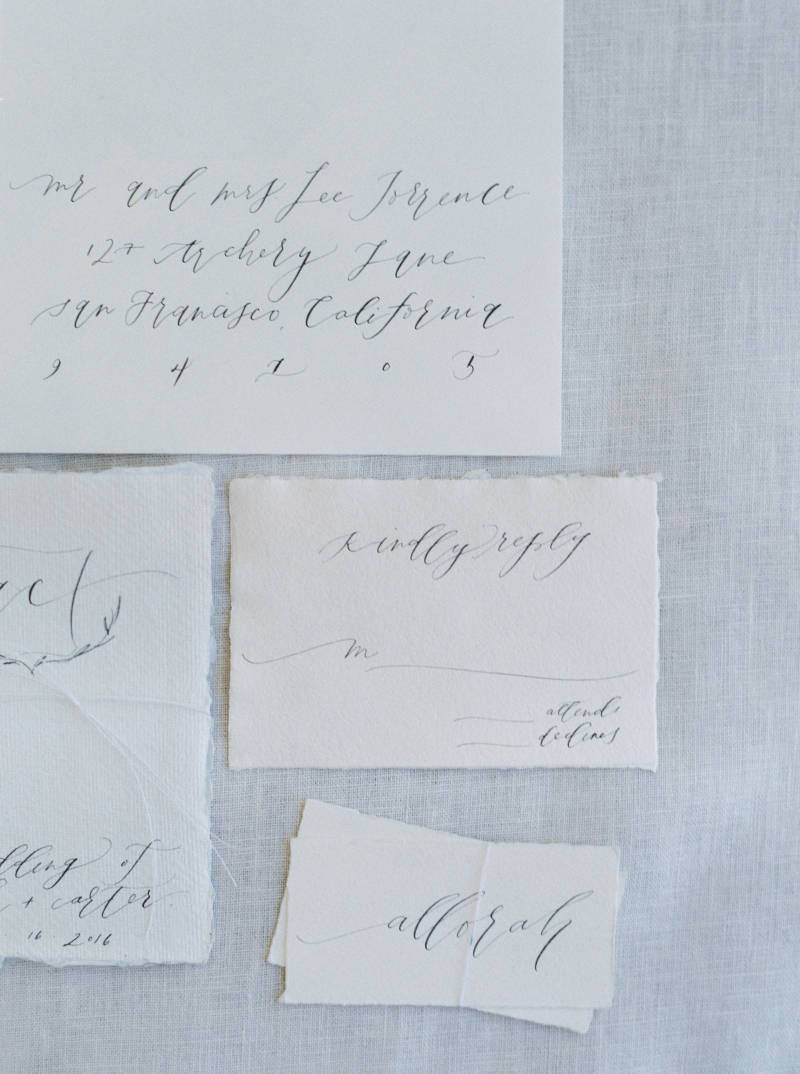 mr and mrs Lee Torrence
127 Archery Lane
san Francisco, California
9 4 1 0 5
kindly reply
m
attends
declines
of
+ carter
16 2016
allorah